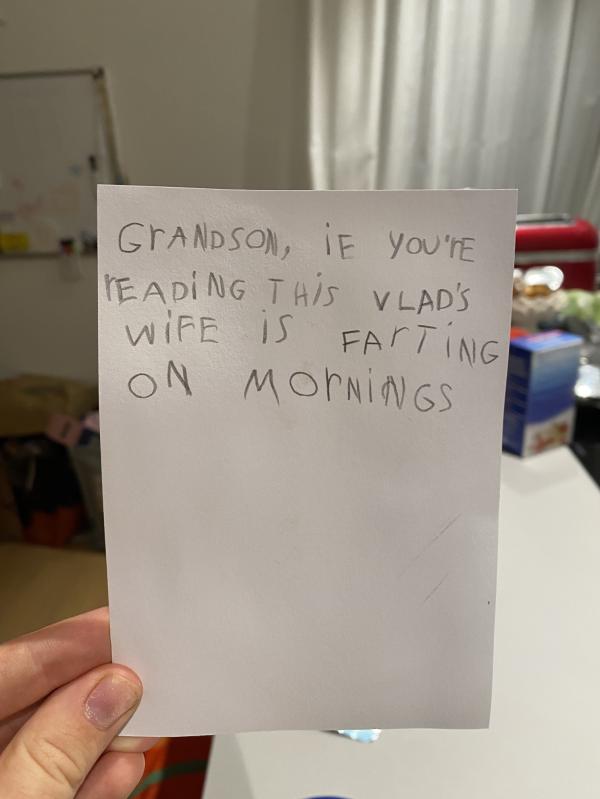 GrANDSON, iE YOU'rE
rEADiNG THiS VLAD'S
WiFE iS FArTiNG
ON MOrNiNGS